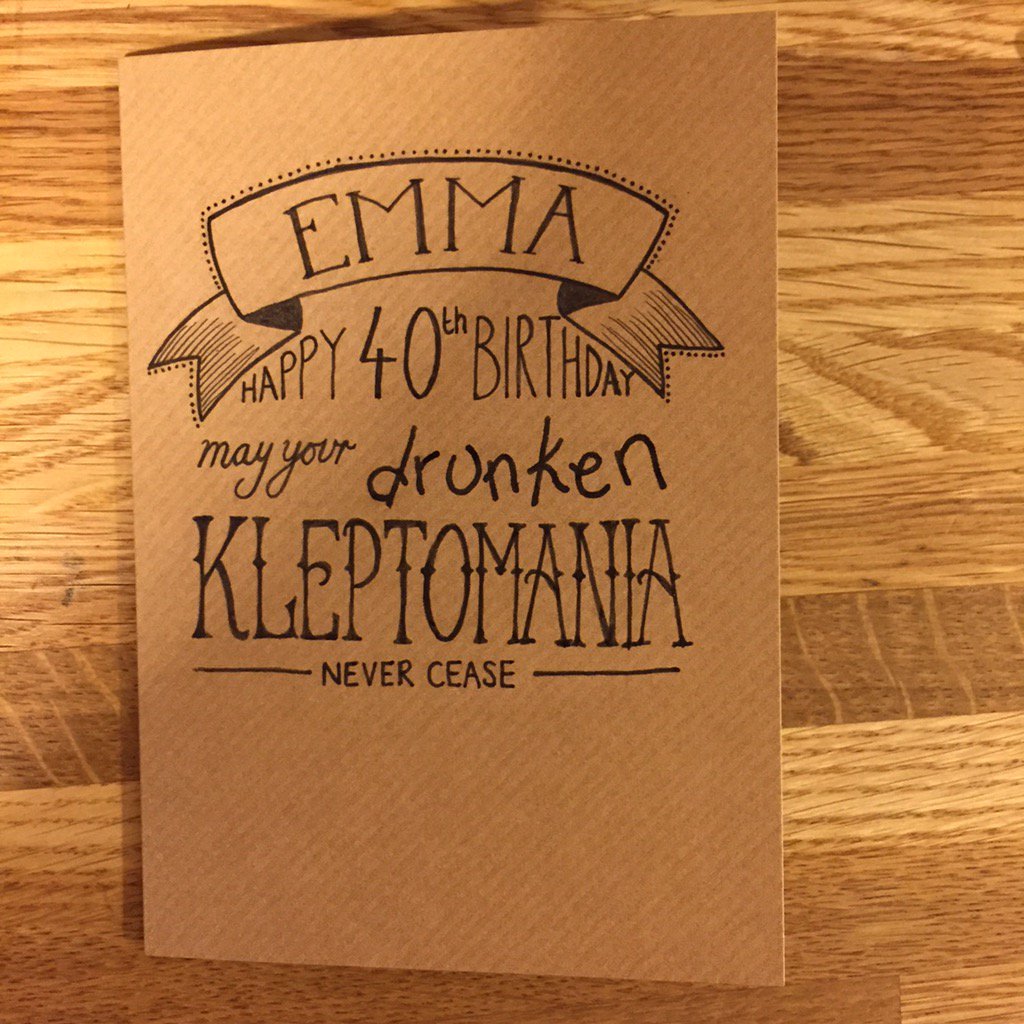 EMMA
HAPPY 40th BIRTHDAY
may your drunken
KLEPTOMANIA
NEVER CEASE